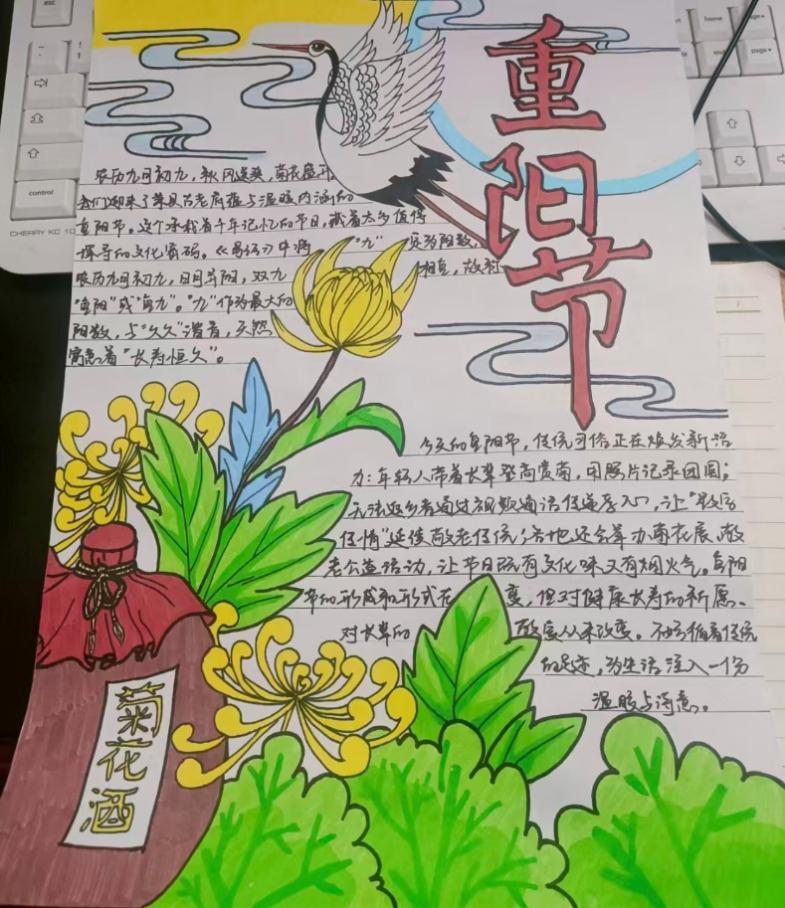 重阳节
农历九月初九，秋风送爽，菊花盛开
我们迎来了兼具古老底蕴与温暖内涵的
重阳节。这个承载着千年记忆的节日，藏着太多值得
探寻的文化密码。《易经》中将"九"定为阳数，
农历九月初九，日月并阳，双九相重，故称
"重阳"或"重九"。"九"作为最大的
阳数，与"久久"谐音，天然
寓意着"长寿恒久"。
今天的重阳节，传统习俗正在焕发新活
力：年轻人带着长辈登高赏菊，用照片记录团圆；
无法返乡者通过视频通话传递孝心，让"敬老
传情"延续敬老传统；各地还会举办菊花展、敬
老公益活动，让节日既有文化味又有烟火气。重阳
节的形成和形式在变，但对健康长寿的祈愿、
对长辈的敬爱从未改变。不妨循着传统
的足迹，为生活注入一份
温暖与诗意。
菊花酒
esc
control
CHERRY KC 10
home
page